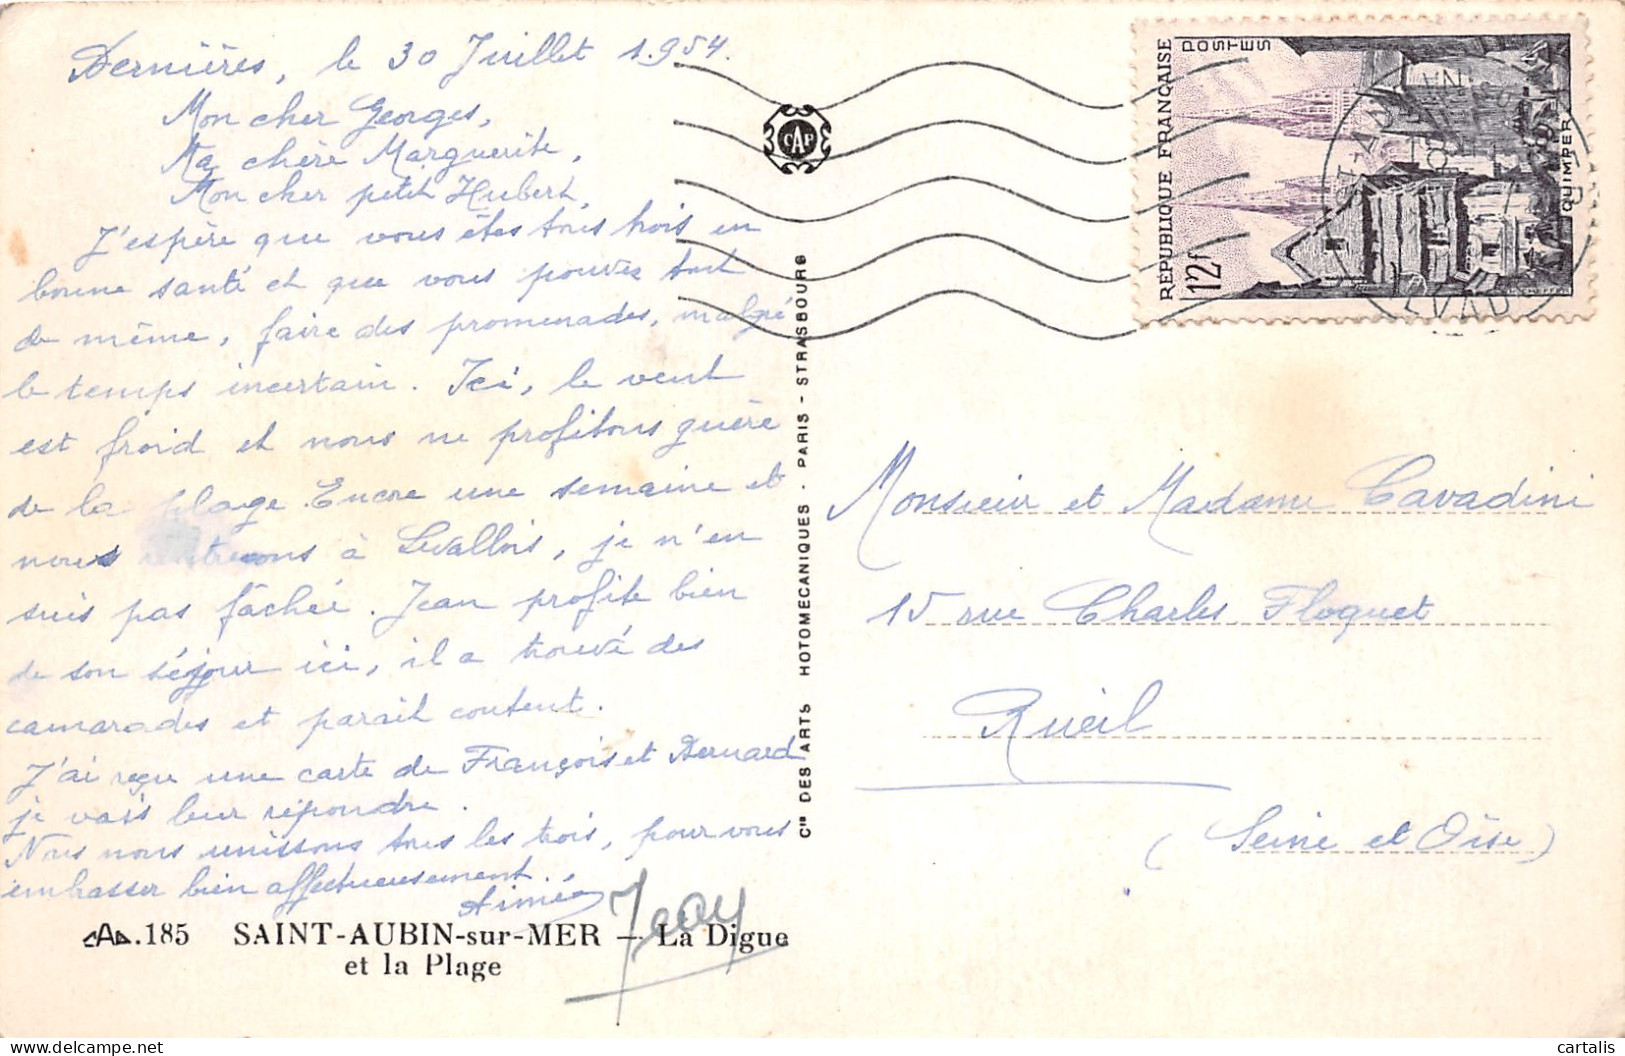 Bernières, le 30 Juillet 1.954.
Mon cher Georges,
Ma chère Marguerite,
Mon cher petit Hubert,
J'espère que vous êtes tous trois en
bonne santé et que vous pouvez tout
de même, faire des promenades, malgré
le temps incertain. Ici, le vent
est froid et nous ne profitons guère
de la plage. Encore une semaine et
nous rentrerons à Levallois, je n'en
suis pas fâchée. Jean profite bien
de son séjour ici, il a trouvé des
camarades et parait content.
J'ai reçu une carte de François et Bernard
je vais leur répondre.
Nous nous unissons tous les trois, pour vous
embrasser bien affectueusement.
Aimée
Jean
CAP.185 SAINT-AUBIN-sur-MER — La Digue
et la Plage
CAP
Cie DES ARTS HOTOMECANIQUES . PARIS - STRASBOURG
RÉPUBLIQUE FRANÇAISE
POSTES
12f
QUIMPER
Monsieur et Madame Cavadini
15 rue Charles Floquet
Rueil
(Seine et Oise)
cartalis